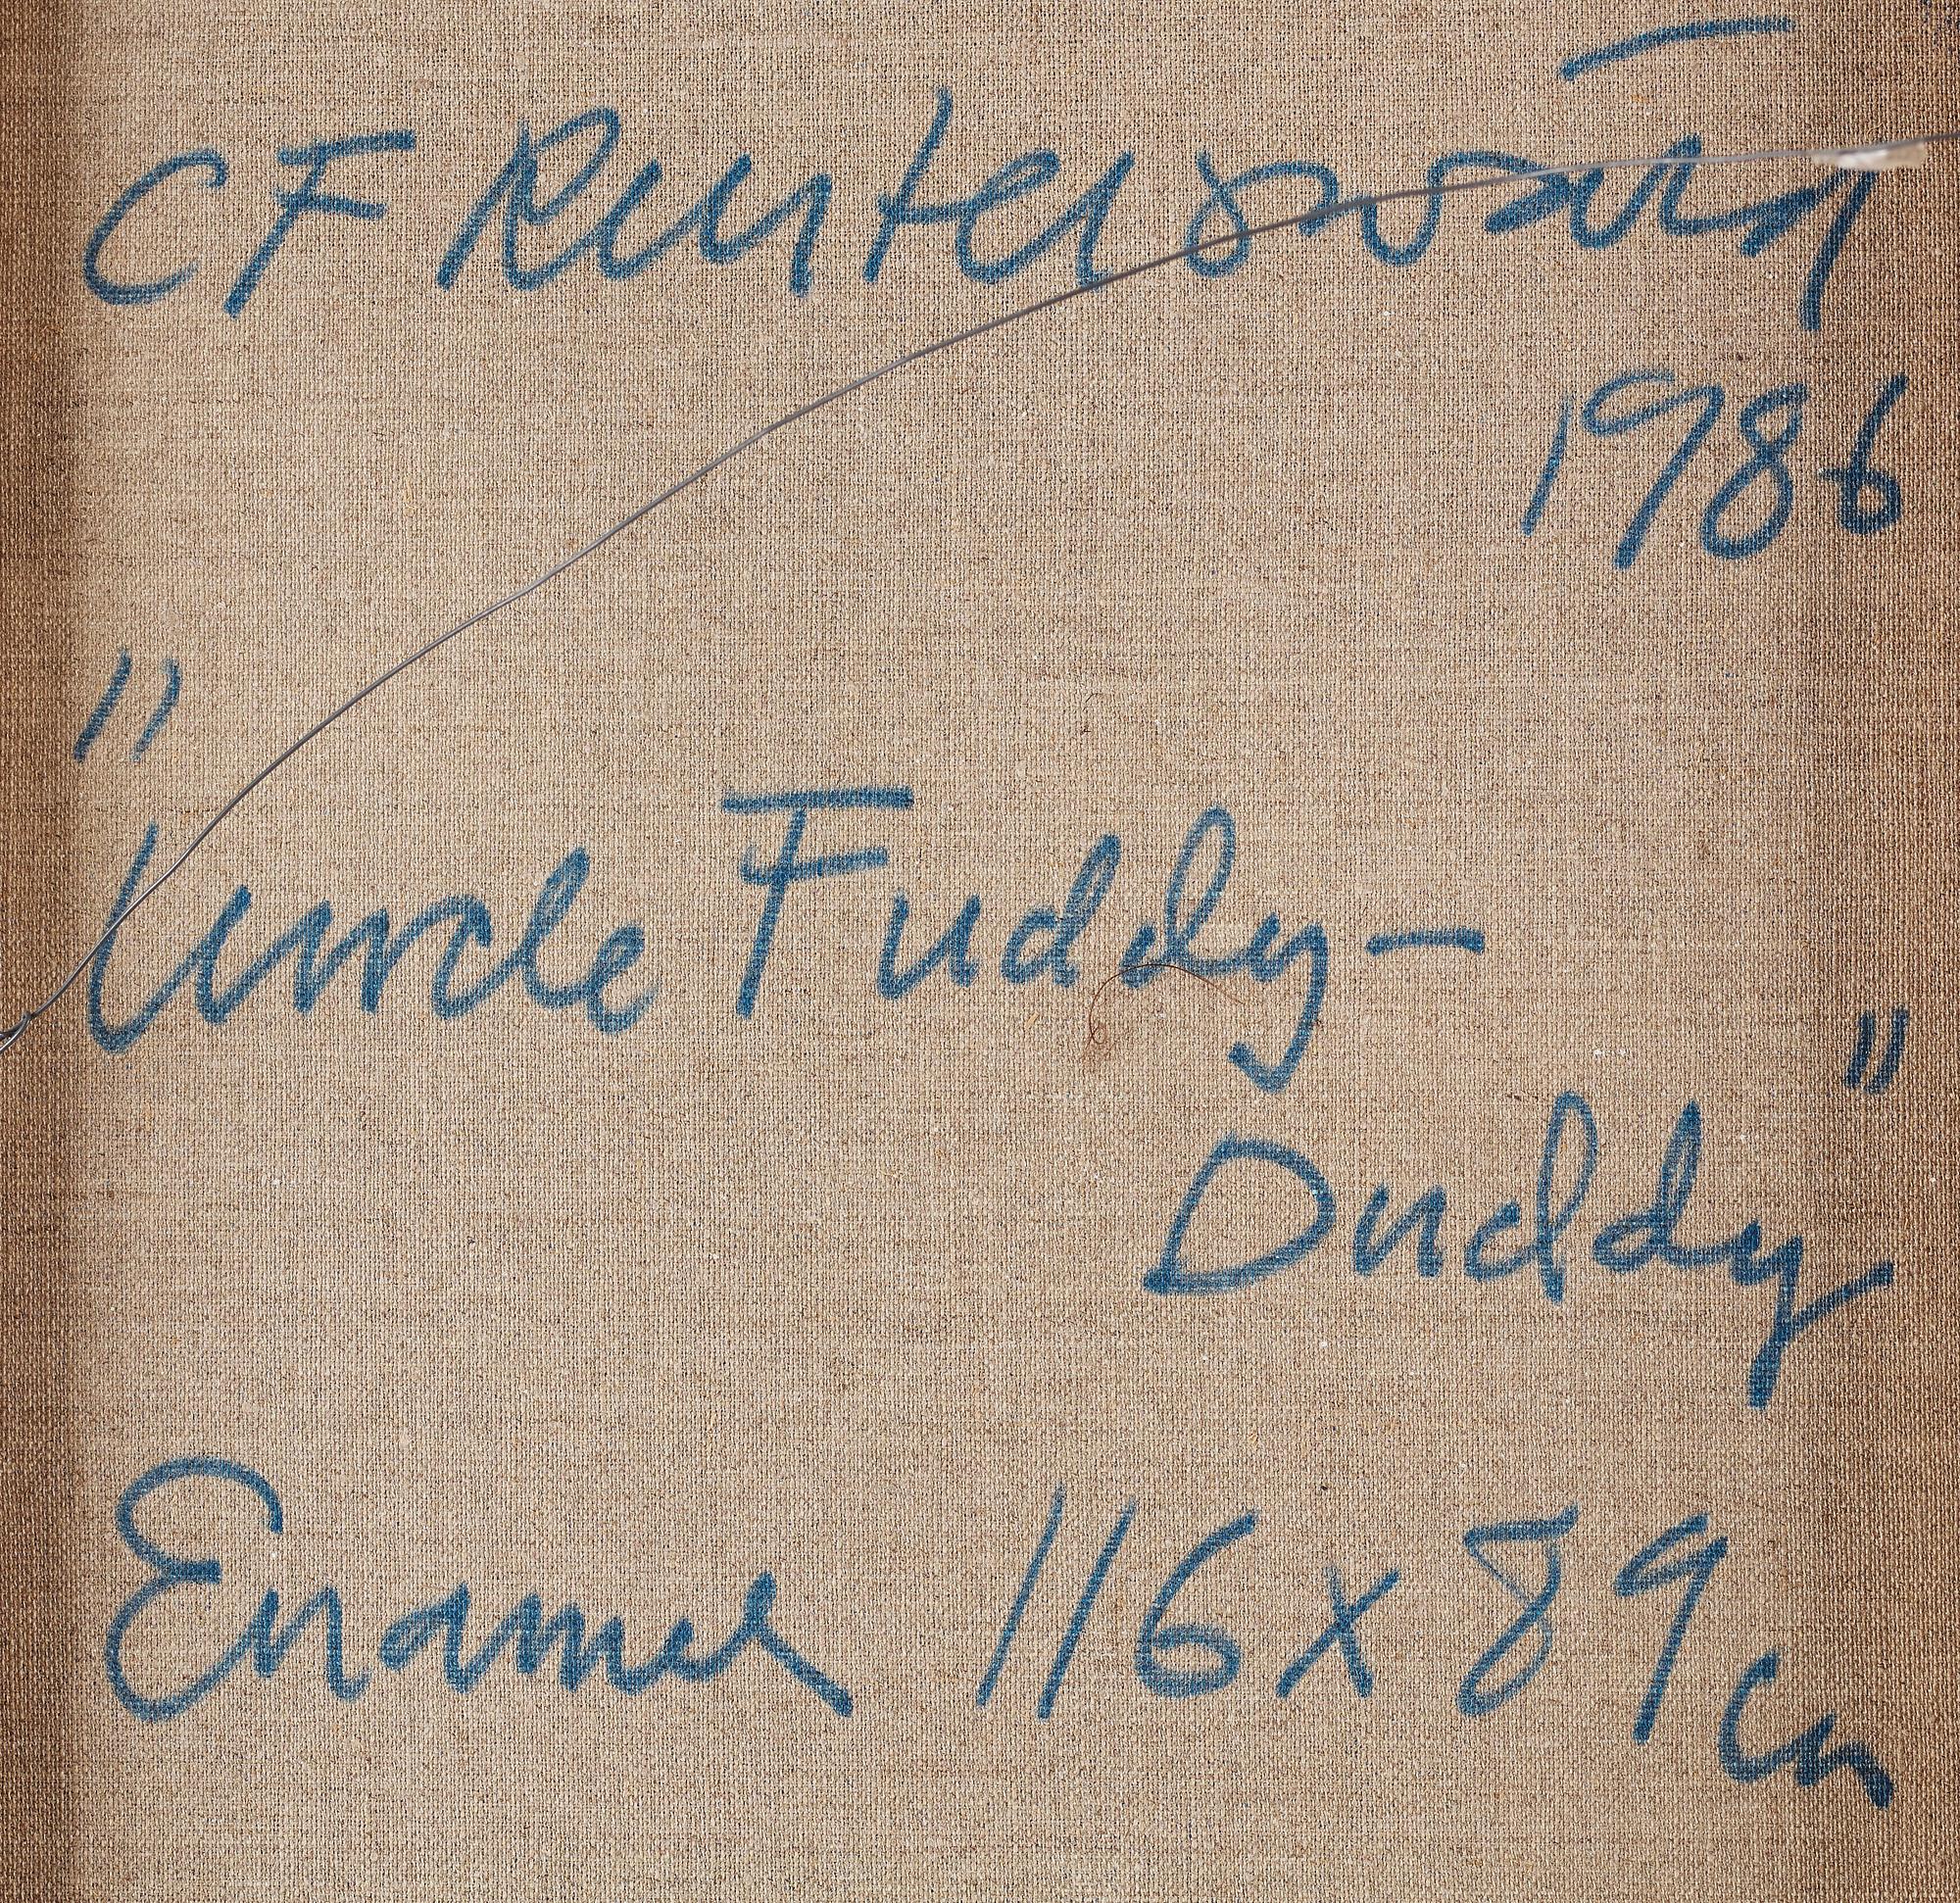 CF Reuterswärd
1986
"Uncle Fuddy-
Duddy"
Enamel 116 x 89 cm